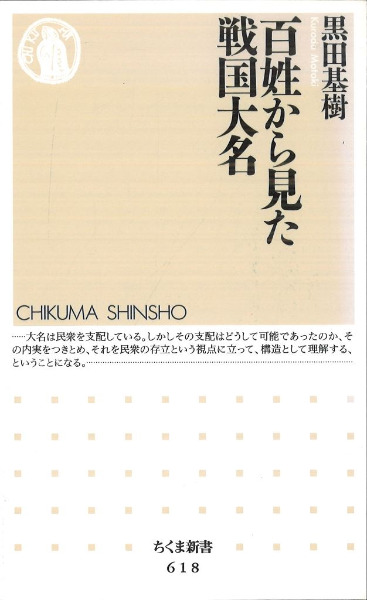 黒田基樹
Kuroda Motoki
百姓から見た
戦国大名
CHIKUMA SHINSHO
……大名は民衆を支配している。しかしその支配はどうして可能であったのか、そ
の内実をつきとめ、それを民衆の存立という視点に立って、構造として理解する、
ということになる。……………………………………………………………………
ちくま新書
618